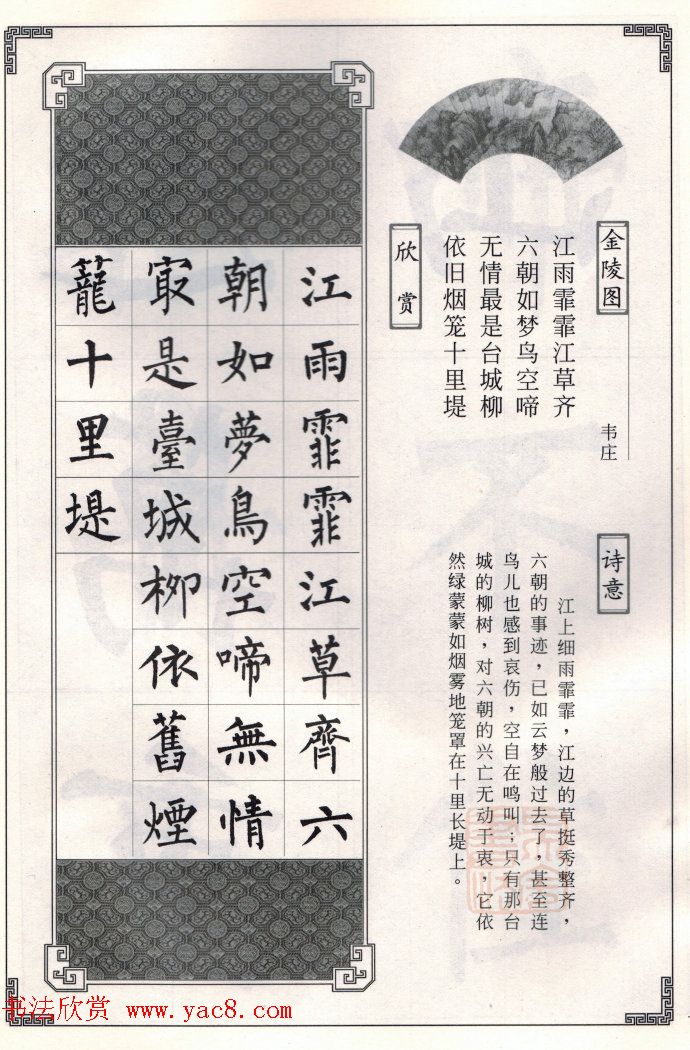 金陵图
韦庄
江雨霏霏江草齐
六朝如梦鸟空啼
无情最是台城柳
依旧烟笼十里堤
欣赏
诗意
江上细雨霏霏，江边的草挺秀整齐，
六朝的事迹，已如云梦般过去了，甚至连
鸟儿也感到哀伤，空自在鸣叫；只有那台
城的柳树，对六朝的兴亡无动于衷，它依
然绿蒙蒙如烟雾地笼罩在十里长堤上。
江雨霏霏江草齊六
朝如夢鳥空啼無情
冣是臺城柳依舊煙
籠十里堤
书法欣赏 www.yac8.com